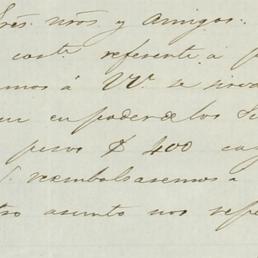 nros. y amigos.
referente á
mos á VV. se sirva
en poder de los
pesos $ 400
reembolsaremos
asunto nos